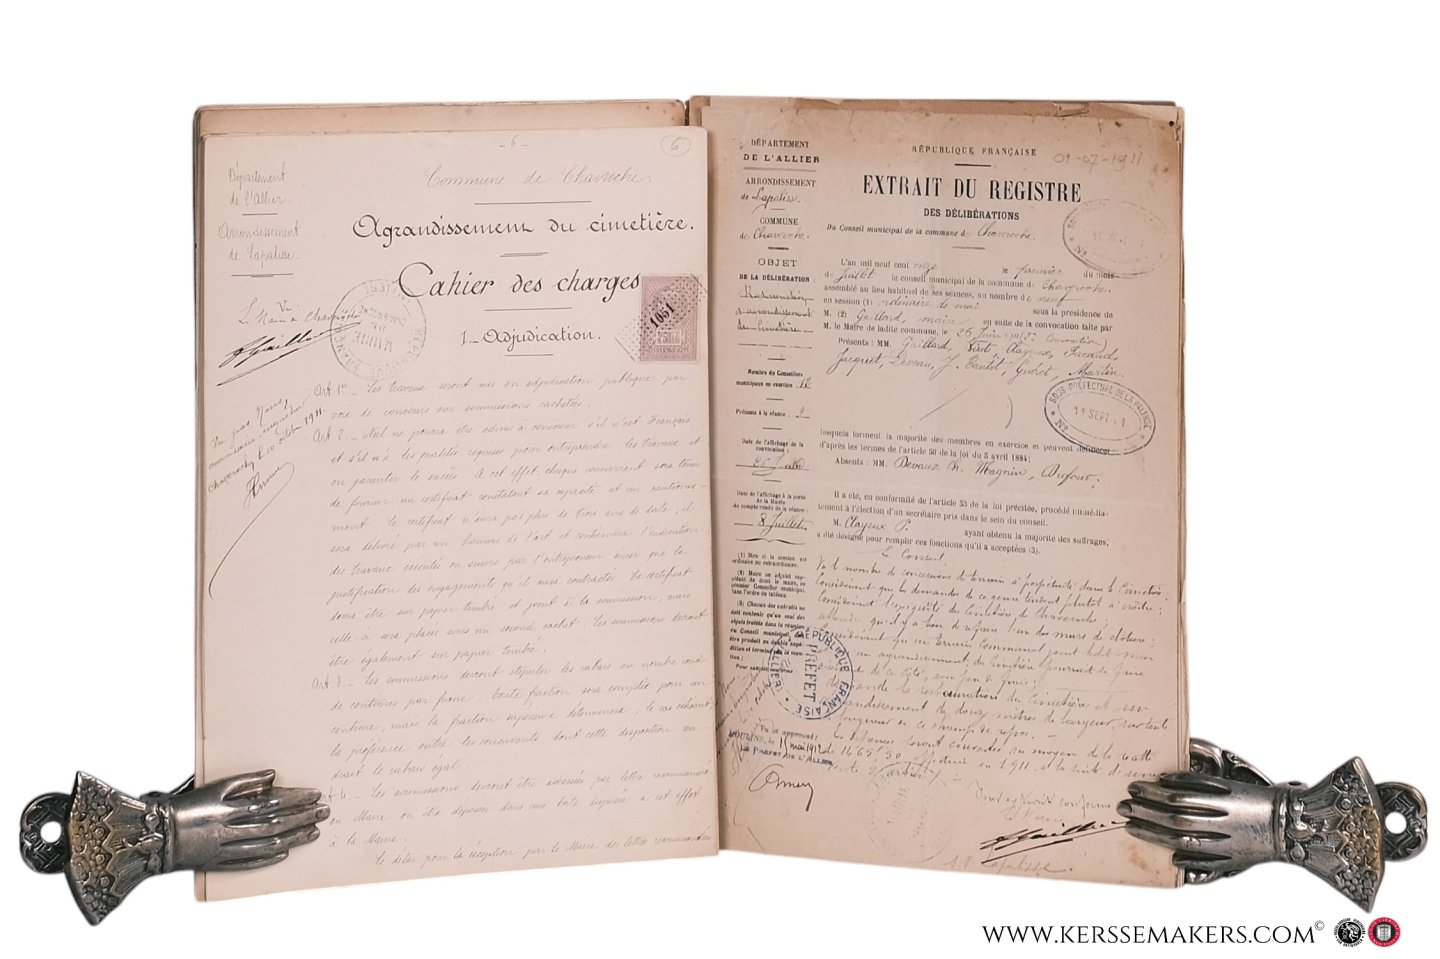 - 6 -
6
Département
de l'Allier.
Arrondissement
de Lapalisse.
Commune de Chavroche.
Agrandissement du cimetière.
Cahier des charges
1. Adjudication.
1051
Vu
Le Maire de Chavroche
Vu par Nous,
Art. 1er _ Les travaux seront mis en adjudication publique par
voie de concours sur soumissions cachetées.
Art. 2 _ Nul ne pourra être admis à concourir s'il n'est Français
et s'il n'a les qualités requises pour entreprendre les travaux et
en garantir le succès. A cet effet, chaque concurrent sera tenu
de fournir un certificat constatant sa capacité et un cautionne-
ment. Ce certificat n'aura pas plus de trois ans de date; il
sera délivré par un homme de l'art et contiendra l'indication
des travaux exécutés ou suivis par l'entrepreneur ainsi que la
justification des engagements qu'il aura contractés. Ce certificat
devra être sur papier timbré et joint à la soumission, mais
celle-ci sera placée sous un second cachet. Les soumissions devront
être également sur papier timbré.
Art. 3 _ Les soumissions devront stipuler les rabais en nombre rond
de centimes par franc. Toute fraction sera comptée pour un
centime, mais la fraction supprimée déterminera, le cas échéant,
la préférence entre les concurrents dont cette disposition au-
drait le rabais égal.
Art. 4 _ Les soumissions devront être adressées par lettre recommandée
au Maire ou être déposées dans une boîte disposée à cet effet
à la Mairie.
Le délai pour la réception par le Maire des lettres recommandées
DÉPARTEMENT
DE L'ALLIER
ARRONDISSEMENT
de Lapalisse.
COMMUNE
de Chavroche.
OBJET
DE LA DÉLIBÉRATION :
du Cimetière
Nombre de Conseillers
municipaux en exercice 12
Présents à la séance 9
Date de l'affichage de la
convocation :
26 Juin
Date de l'affichage à la porte
de la Mairie
du compte rendu de la séance :
8 Juillet
(1) Dire si la session est
ordinaire ou extraordinaire.
(2) Maire ou adjoint sup-
pléant de droit le maire, ou
premier Conseiller municipal,
dans l'ordre du tableau.
(3) Chacun des extraits ne
doit contenir qu'un seul des
objets traités dans la réunion
du Conseil municipal, et
être produit en double expé-
dition et terminé par la men-
tion :
Pour extrait conforme
RÉPUBLIQUE FRANÇAISE
01-07-1911
EXTRAIT DU REGISTRE
DES DÉLIBÉRATIONS
Du Conseil municipal de la commune de Chavroche.
L'an mil neuf cent onze le premier du mois
de Juillet le conseil municipal de la commune de Chavroche.
assemblé au lieu habituel de ses séances, au nombre de neuf
en session (1) ordinaire de mai sous la présidence de
M. (2) Gaillard, maire en suite de la convocation faite par
M. le Maire de ladite commune, le 26 Juin
Présents : MM. Gaillard, Virot, Clayeux,
Jacquet, J. Guéret, Martin.
SOUS-PRÉFECTURE DE LAPALISSE
11 SEPT
lesquels forment la majorité des membres en exercice et peuvent délibérer
d'après les termes de l'article 50 de la loi du 5 avril 1884;
Absents : MM. Devaux Ch. Magnin, Dufour.
Il a été, en conformité de l'article 53 de la loi précitée, procédé immédia-
tement à l'élection d'un secrétaire pris dans le sein du conseil.
M. Clayeux P. ayant obtenu la majorité des suffrages,
a été désigné pour remplir ces fonctions qu'il a acceptées (3).
Le Conseil,
Vu le nombre de concessions de terrain à perpétuité dans le Cimetière
Considérant que les demandes de ce genre tendent plutôt à croître;
Considérant l'exiguité du Cimetière de Chavroche;
attendu qu'il y a lieu de refaire l'un des murs de clôture.
Considérant qu'un terrain Communal joint
un agrandissement du Cimetière pourrait se faire
demande la restauration du Cimetière et un
agrandissement de douze mètres de largeur, sur tout
longueur de ce champ de repos. _
RÉPUBLIQUE FRANÇAISE
PRÉFET
(ALLIER)
Vu et approuvé :
MOULINS, le 15 mai 1912
LE PRÉFET DE L'ALLIER
Pour extrait conforme
Le Maire
S.P. Lapalisse.
WWW.KERSSEMAKERS.COM©